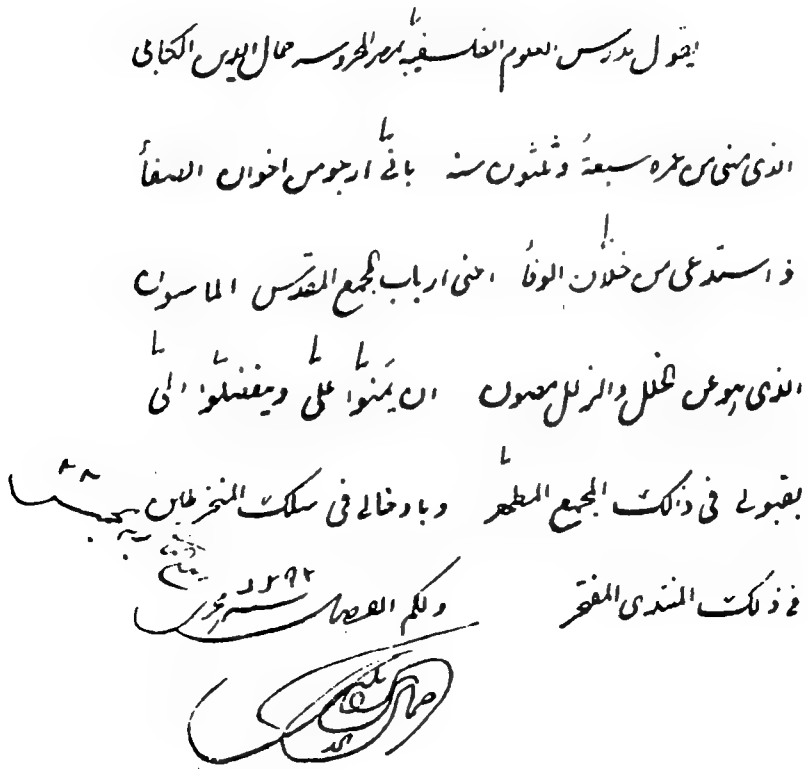 يقول مدرس العلوم الفلسفية بمصر المحروسه جمال الدين الكابلى
الذى مضى من عمره سبعة وثلثون سنه بانّى ارجو من اخوان الصفأ
واستدعى من خلّان الوفأ اعنى ارباب المجمع المقدّس الماسون
الذى هو عن الخلل والزلل مصون ان يَمنّوا علىّ ويتفضّلوا الىّ
بقبولى فى ذلك المجمع المطهّر وبادخالى فى سلك المنخرطين
فى ذلك المنتدى المفتخر ولكم الفضل
١٢٩٢